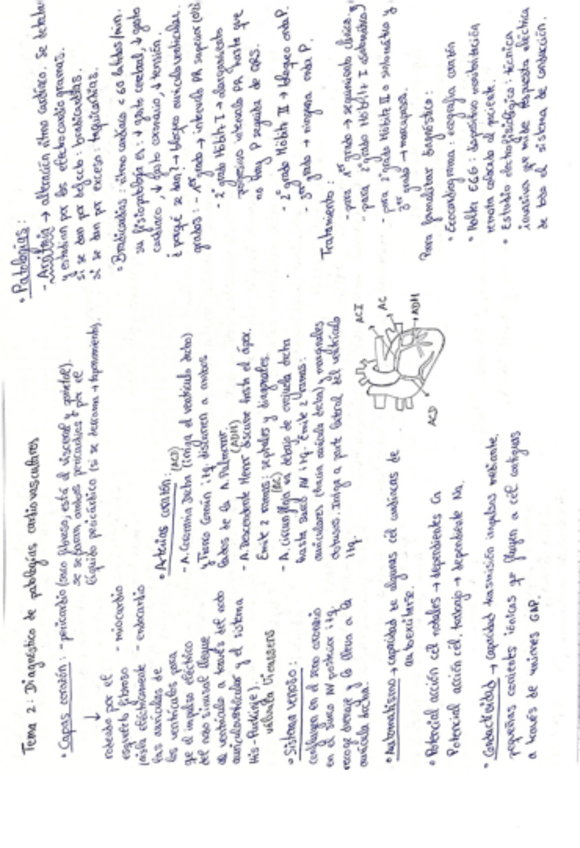 Tema 2: Diagnóstico de patologías cardiovasculares
• Capas corazón: - pericardio (saco fibroso, está el visceral y parietal).
se separan ambos pericardios x por el
líquido pericárdico (si se derrama → taponamiento).
rodeado por el
esqueleto fibroso
(aísla eléctricamente
las aurículas de
los ventrículos para
qe el impulso eléctrico
del nodo sinusal llegue
al ventrículo a través del nodo
auriculoventricular y el sistema
His-Purkinje)
- miocardio
- endocardio
válvula Vieussens
• Sistema venoso:
confluyen en el seno coronario
en el surco AV posterior izq.
recoge drenaje y lo lleva a la
aurícula dcha.
• Arterias corazón:
(ACD)
- A. Coronaria Dcha (irriga el ventrículo dcho)
y Tronco Común izq. discurren a ambos
lados de la A. Pulmonar.
(ADM)
- A. Descendente Menor discurre hasta el ápex.
Emite 2 ramas: septales y diagonales.
(AC)
- A. Circunfleja va debajo de orejuela dcha
hasta surco AV izq. Emite 2 ramas:
auriculares (hacia aurícula dcha) y marginales
obtusas. Irriga a parte lateral del ventrículo
izq.
ACI
AC
ADM
ACD
• Automatismo → capacidad de algunas cél cardíacas de
autoexcitarse.
• Potencial acción cél nodales → dependientes Ca
Potencial acción cél. trabajo → dependiente Na.
• Conductividad → capacidad trasmisión impulsos mediante
pequeñas corrientes iónicas qe fluyen a cél contiguas
a través de uniones GAP.
• Patologías:
- Arritmia → alteración ritmo cardíaco. Se
y estudian por los electrocardiogramas.
si se dan por defecto: bradicardias.
si se dan por exceso: taquicardias.
• Bradicardias: ritmo cardíaco < 60 latidos/min.
su fisiopatología es: ↓ gasto cerebral, ↓ gasto
cardíaco, ↓ gasto coronario, ↓ tensión.
¿ porqé se dan? → bloqueo auriculoventricular.
grados: - 1er grado → intervalo PR superior
- 2º grado Mobitz I → alargamiento
progresivo intervalo PR hasta que
no hay P seguida de QRS.
- 2º grado Mobitz II → bloqueo onda P.
- 3er grado → ninguna onda P.
Tratamiento:
- para 1er grado → seguimiento clínico y
- para 2º grado Mobitz I asintomático
- para 2º grado Mobitz II o sintomático y
3er grado → marcapasos.
Para garantizar diagnóstico:
• Ecocardiograma: ecografía corazón
• Holter ECG: dispositivo monitorización
remota colocado al paciente.
• Estudio electrofisiológico: técnica
invasiva qe mide respuesta eléctrica
de todo el sistema de conducción.